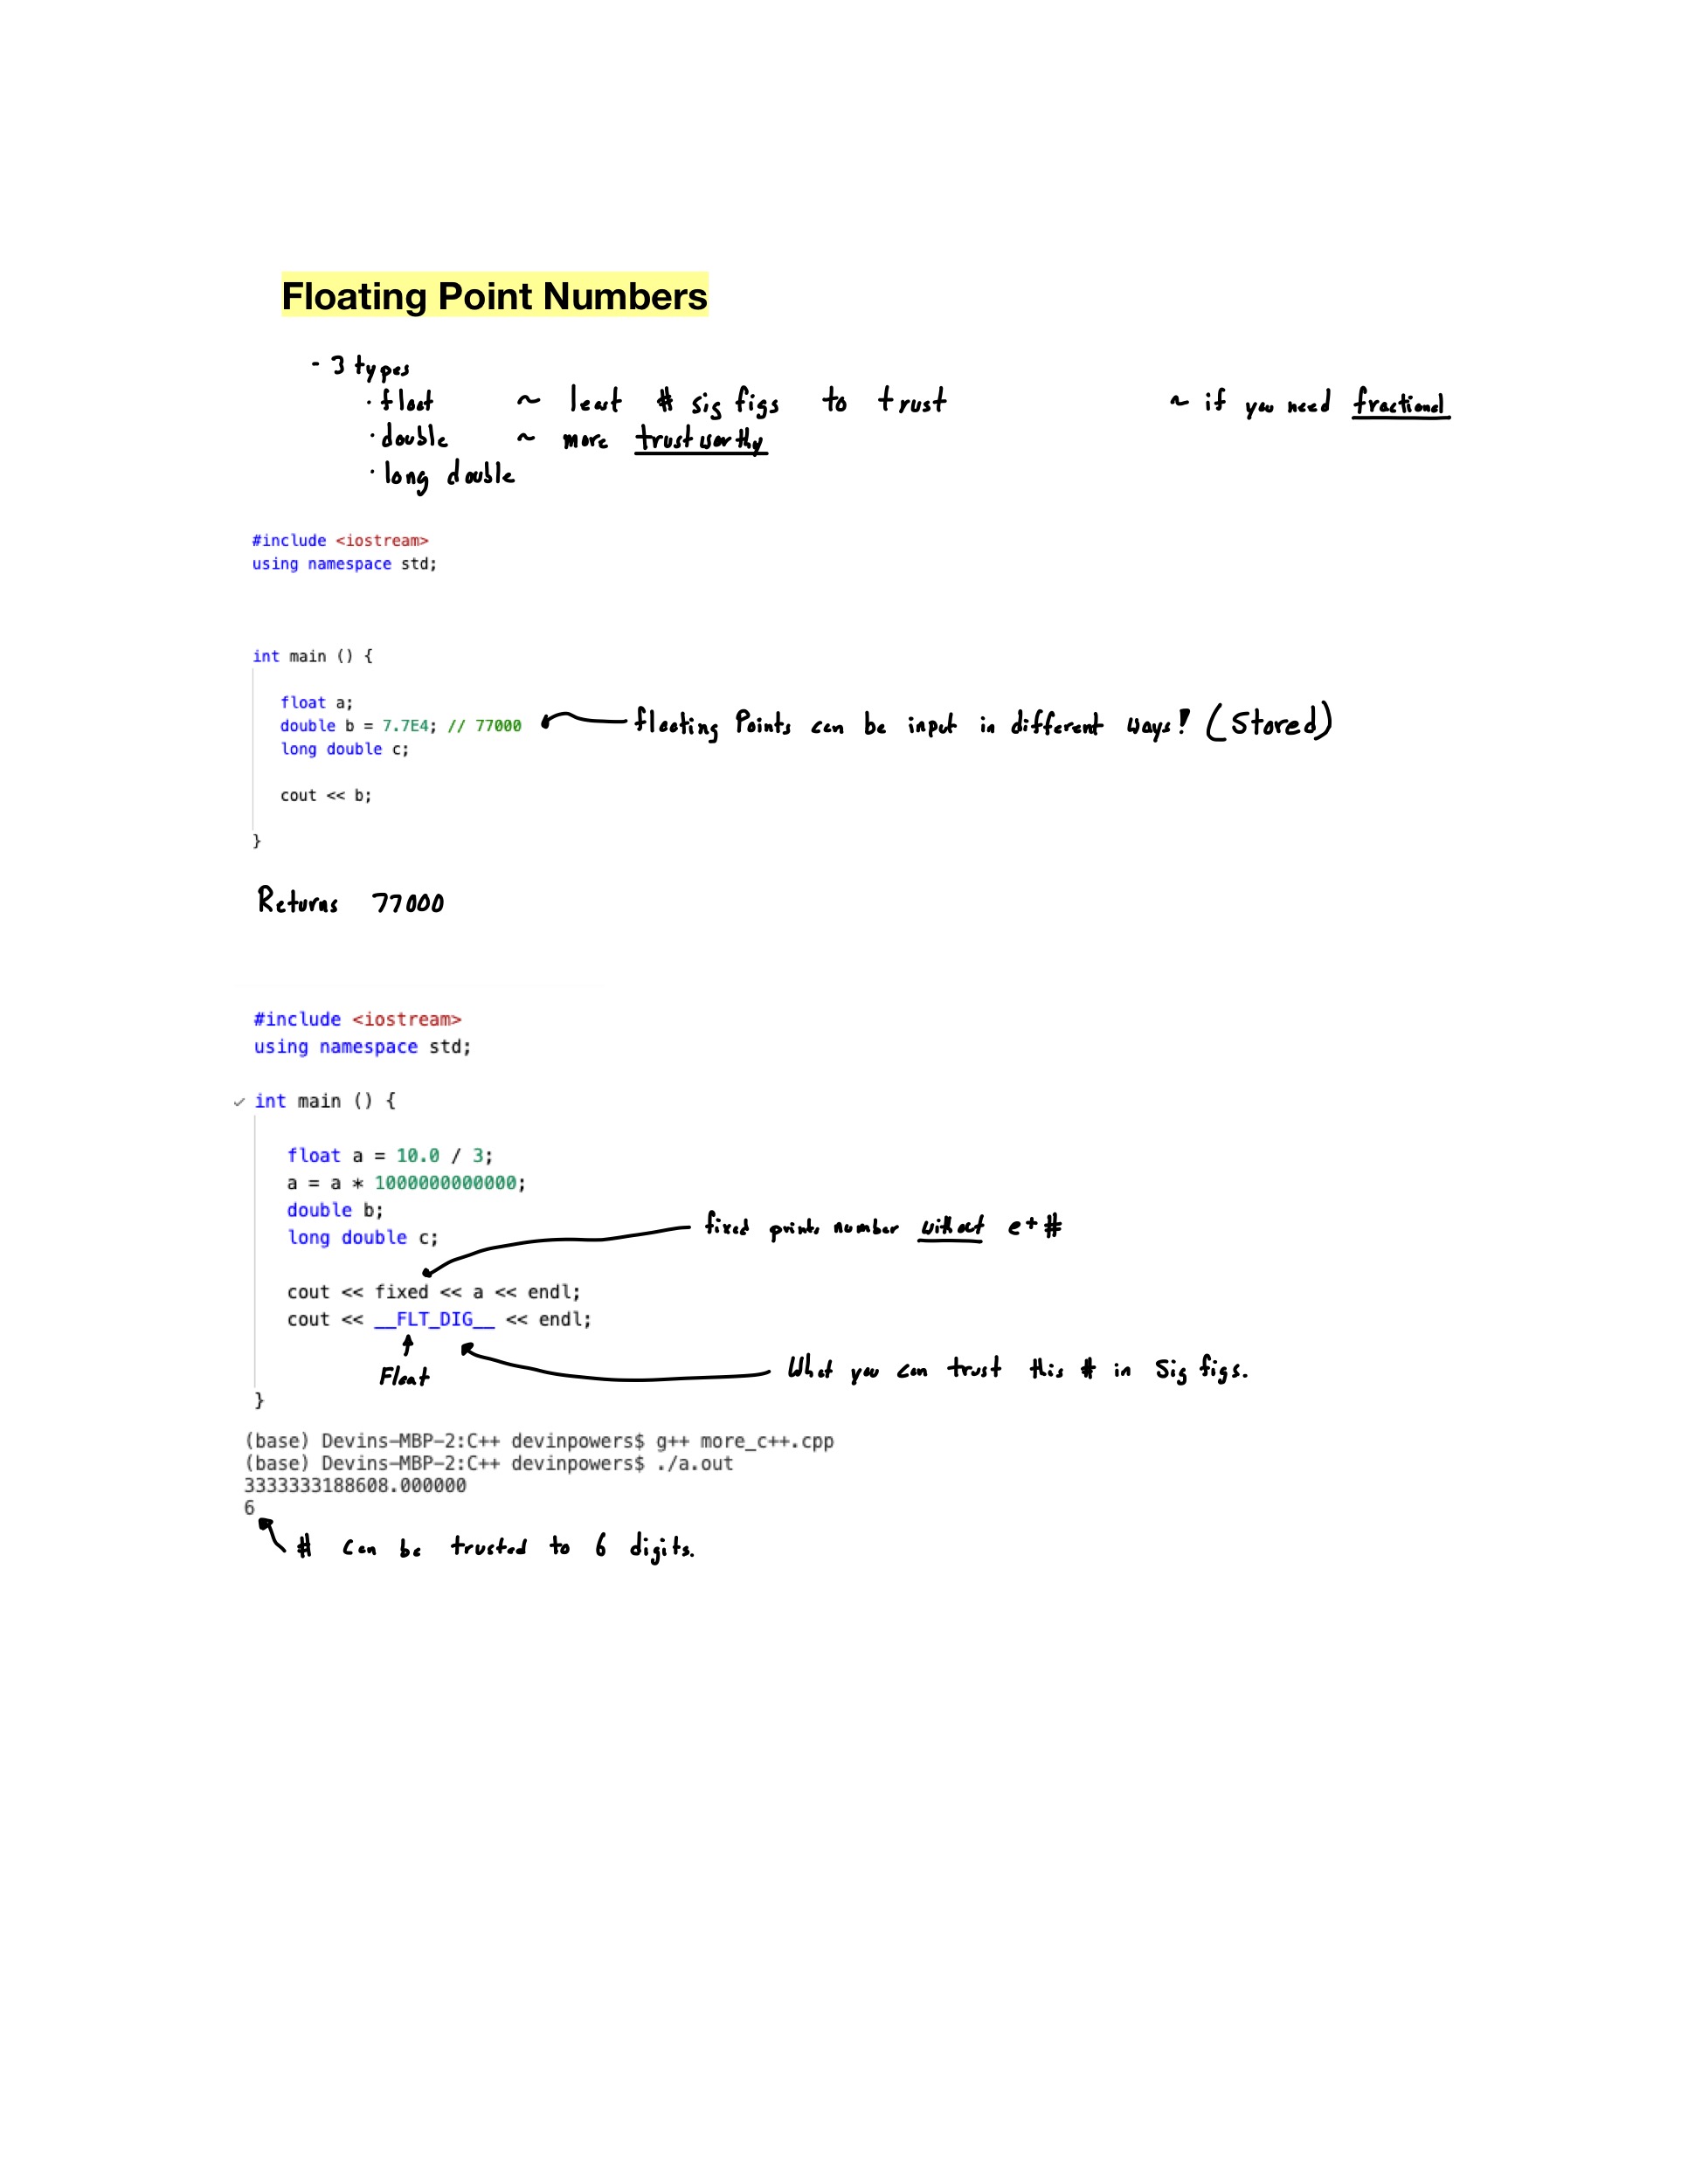 Floating Point Numbers
- 3 types
· float ~ least # sig figs to trust ~ if you need fractional
· double ~ more trustworthy
· long double
#include <iostream>
using namespace std;
int main () {
float a;
double b = 7.7E4; // 77000 floating Points can be input in different ways! (Stored)
long double c;
cout << b;
}
Returns 77000
#include <iostream>
using namespace std;
int main () {
float a = 10.0 / 3;
a = a * 1000000000000;
double b;
long double c;
fixed prints number without e+#
cout << fixed << a << endl;
cout << __FLT_DIG__ << endl;
Float
What you can trust this # in Sig figs.
}
(base) Devins-MBP-2:C++ devinpowers$ g++ more_c++.cpp
(base) Devins-MBP-2:C++ devinpowers$ ./a.out
3333333188608.000000
6
# can be trusted to 6 digits.